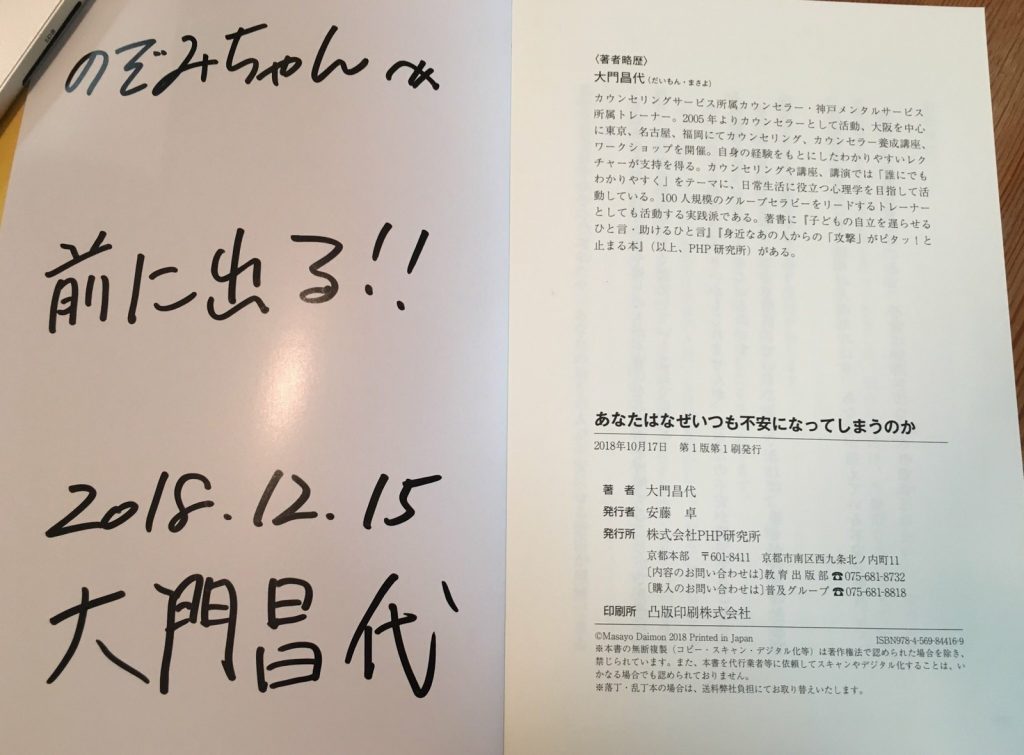 のぞみちゃん へ
前に出る!!
2018.12.15
大門昌代
〈著者略歴〉
大門昌代(だいもん・まさよ)
カウンセリングサービス所属カウンセラー・神戸メンタルサービス
所属トレーナー。2005年よりカウンセラーとして活動、大阪を中心
に東京、名古屋、福岡にてカウンセリング、カウンセラー養成講座、
ワークショップを開催。自身の経験をもとにしたわかりやすいレク
チャーが支持を得る。カウンセリングや講座、講演では「誰にでも
わかりやすく」をテーマに、日常生活に役立つ心理学を目指して活
動している。100人規模のグループセラピーをリードするトレーナー
としても活動する実践派である。著書に『子どもの自立を遅らせる
ひと言・助けるひと言』『身近なあの人からの「攻撃」がピタッ!と
止まる本』(以上、PHP研究所)がある。
あなたはなぜいつも不安になってしまうのか
2018年10月17日 第1版第1刷発行
著 者 大門昌代
発行者 安藤 卓
発行所 株式会社PHP研究所
京都本部 〒601-8411 京都市南区西九条北ノ内町11
〔内容のお問い合わせは〕教育出版部☎075-681-8732
〔購入のお問い合わせは〕普及グループ☎075-681-8818
印刷所 凸版印刷株式会社
©Masayo Daimon 2018 Printed in Japan ISBN978-4-569-84416-9
※本書の無断複製(コピー・スキャン・デジタル化等)は著作権法で認められた場合を除き、
禁じられています。また、本書を代行業者等に依頼してスキャンやデジタル化することは、い
かなる場合でも認められておりません。
※落丁・乱丁本の場合は、送料弊社負担にてお取り替えいたします。